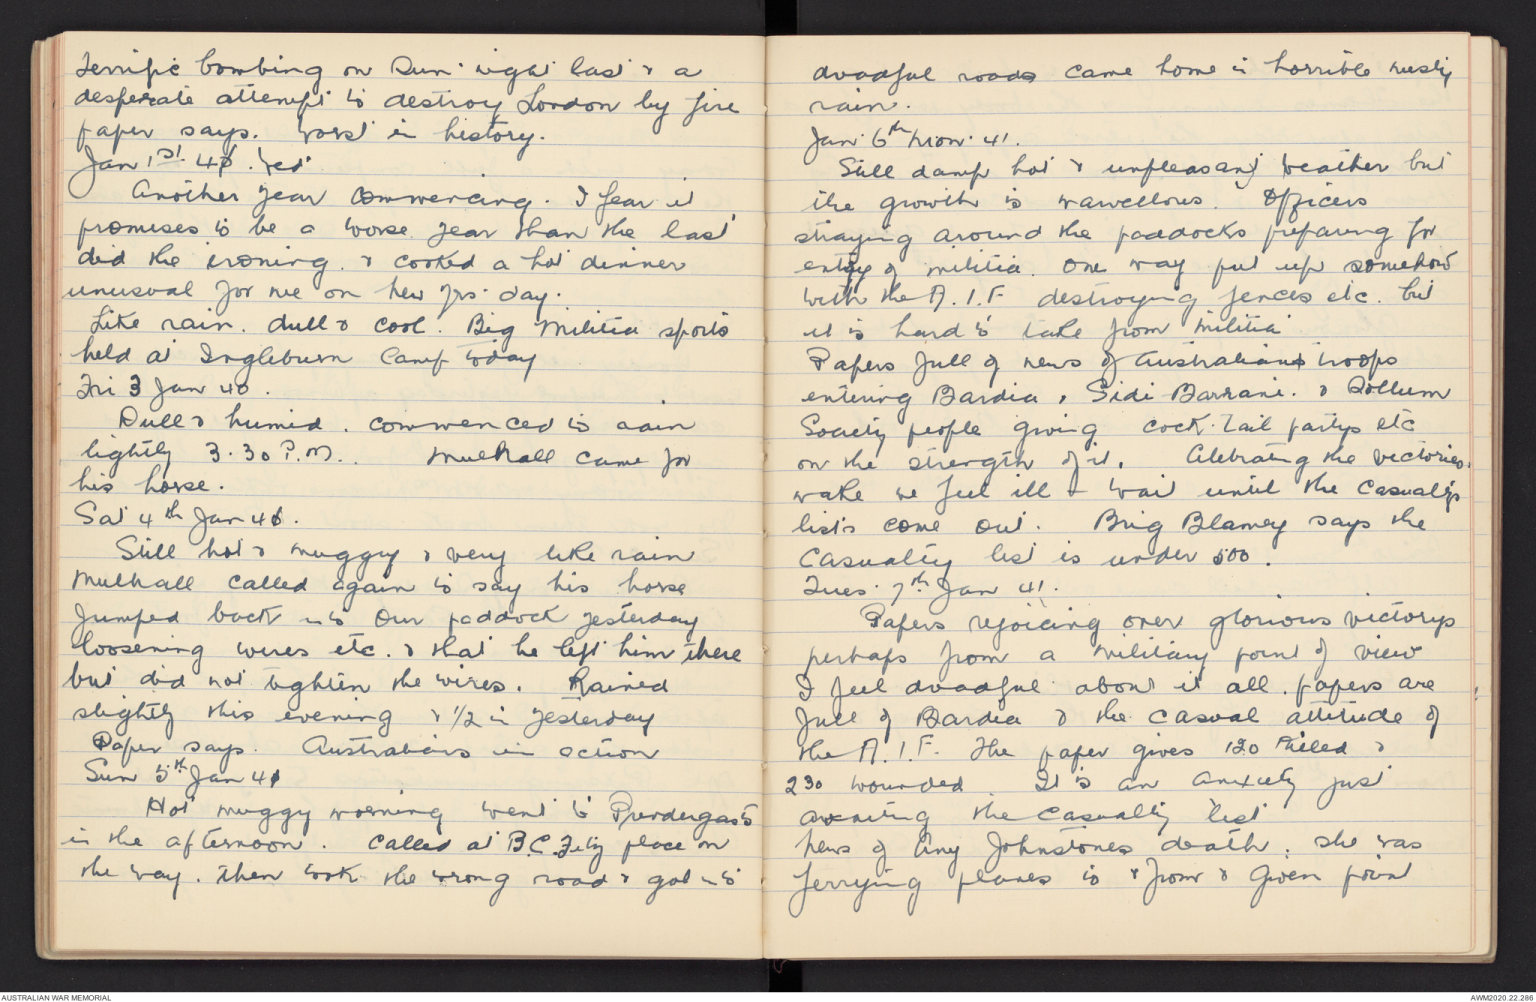 terrific bombing on Sun. night last & a
desperate attempt to destroy London by fire
paper says. Worst in history.
Jan 1st 41. Wed.
Another year commencing. I fear it
promises to be a worse year than the last
did the ironing. & cooked a hot dinner
unusual for me on New Yrs. day.
Like rain. dull & cool. Big Militia sports
held at Ingleburn Camp today
Fri 3 Jan 40.
Dull & humid. commenced to rain
lightly 3.30 P.M.. Mulhall came for
his horse.
Sat 4th Jan 41.
Still hot & muggy & very like rain
Mulhall called again to say his horse
jumped back into our paddock yesterday
loosening wires etc. & that he left him there
but did not tighten the wires. Rained
slightly this evening & 1/2 in yesterday
Paper says. Australians in action
Sun 5th Jan 41
Hot muggy morning went to Prendergasts
in the afternoon. Called at B.C. place on
the way. then took the wrong road & got into
dreadful roads came home in horrible misty
rain.
Jan 6th Mon. 41.
Still damp hot & unpleasant weather but
the growth is marvellous. Officers
straying around the paddocks preparing for
entry of militia. One may put up somehow
with the A.I.F destroying fences etc. but
it is hard to take from militia
Papers full of news of Australians troops
entering Bardia, Sidi Barrani. & Sollum
Society people giving cock. tail partys etc
on the strength of it. Clebrating the victories.
make me feel ill – wait until the casualtys
lists come out. Brig Blamey says the
casualty list is under 500.
Tues. 7th Jan 41.
Papers rejoicing over glorious victorys
perhaps from a military point of view
I feel dreadful about it all. papers are
full of Bardia & the casual attitude of
the A.I.F. The paper gives 120 killed &
230 wounded It is an anxiety just
awaiting the casualty list
News of Amy Johnstones death. she was
ferrying planes to & from & given point
AUSTRALIAN WAR MEMORIAL
AWM2020.22.266